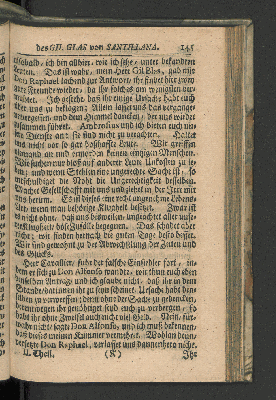 des GIL BLAS von SANTILLANA. 145
alsobald, ich den allhier, wie ich sehe, unter bekandten
Leuten. Das ist wahr, mein Herr Gil Blas, gab mir
Don Raphael lachend zur Antwort, ihr findet hier zwey
eure Freunde wieder, da ihr solches am wenigsten ver-
muthet. Ich gestehe, daß ihr einige Ursache habt euch
über uns zu beklagen; Allein lasset uns das vergange-
ne vergessen, und dem Himmel dancken, der uns wieder
zusammen führet. Ambrosius und ich bieten euch un-
sere Dienste an: sie sind nicht zu verachten. Haltet
uns nicht vor so gar boßhaffte Leute. Wir greiffen
niemand an und ermorden keinen einzigen Menschen.
Wir suchen nur bloß auf anderer Leute Unkosten zu le-
ben; und wenn Stehlen eine ungerechte Sache ist, so
entschuldiget die Noht die Ungerechtigkeit desselben.
Machet Gesellschafft mit uns und ziehet im Lande mit
uns herum. Es ist dieses eine recht angenehme Lebens-
Art, wenn man sich Klugheit besitzet. Zwar
nicht ohne, daß uns bisweilen, ungeachtet aller unse-
rer Klugheit, böse Zufälle begegnen. Das schadet aber
nicht; wir finden hernach die guten Tage desto besser.
Wir sind gewohnt zu der Abwechslung der Zeiten und
des Glücks.
Herr Cavallier, fuhr der falsche Einsiedler fort, in-
dem er sich zu Don Alfonso wandte, wir thun euch eben
denselben Antrag, und ich glaube nicht, daß ihr in dem
Stande, darinnen ihr zu seyn scheinet, Ursache habt den-
selben zu verwerffen; denn ohne der Sache zu gedencken,
derentwegen ihr genöthiget seyd euch zu verbergen, so
habt ihr ohne Zweifel auch nicht viel Geld. Nein, für-
wahr nicht, sagte Don Alfonso, und ich muß bekennen,
daß dieses meinen Kummer vermehret. Wohlan denn,
versetzte Don Raphael, verlasset uns dannenhero nicht.
II. Theil. (K) Ihr